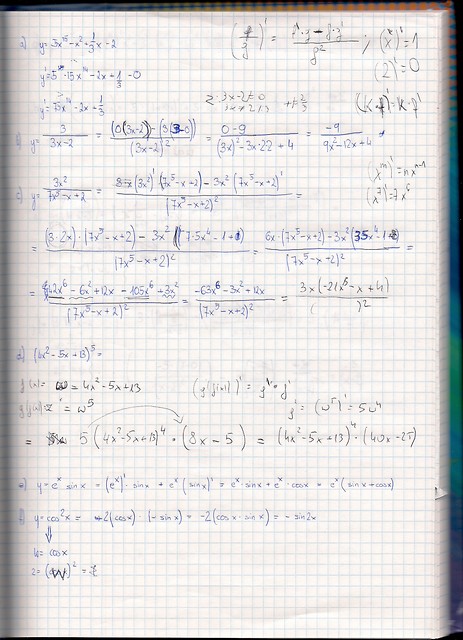 a) y = 3x¹⁵ - x² + ⅓x - 2
(f/g)' = (f'·g - f·g')/g² ; (x)' = 1
(2)' = 0
y' = 15x¹⁴ - 2x + ⅓
(k·f)' = k·f'
b) y = 3/(3x-2) = (0(3x-2) - (3(3-0)))/(3x-2)² = (0-9)/((3x)² - 3x·2·2 + 4) = -9/(9x² - 12x + 4)
(xⁿ)' = nxⁿ⁻¹
(x⁷)' = 7x⁶
c) y = 3x²/(7x⁵-x+2) = ((3x²)'(7x⁵-x+2) - 3x²(7x⁵-x+2)')/(7x⁵-x+2)² =
= ((3·2x)·(7x⁵-x+2) - 3x²(7·5x⁴-1+0))/(7x⁵-x+2)² = (6x·(7x⁵-x+2) - 3x²(35x⁴-1))/(7x⁵-x+2)² =
= (42x⁶ - 6x² + 12x - 105x⁶ + 3x²)/(7x⁵-x+2)² = (-63x⁶ - 3x² + 12x)/(7x⁵-x+2)² = 3x(-21x⁵ - x + 4)/( )²
d) (4x² - 5x + 13)⁵ =
f(x) = w = 4x² - 5x + 13 (g(f(x)))' = g'·f'
g(f(x)) z = w⁵ g' = (w⁵)' = 5w⁴
= 5(4x²-5x+13)⁴·(8x-5) = (4x²-5x+13)⁴·(40x-25)
e) y = eˣ sinx = (eˣ)'·sinx + eˣ(sinx)' = eˣ·sinx + eˣ·cosx = eˣ(sinx+cosx)
f) y = cos²x = 2(cosx)·(-sinx) = -2(cosx·sinx) = -sin2x
u = cosx
z = ( )² =